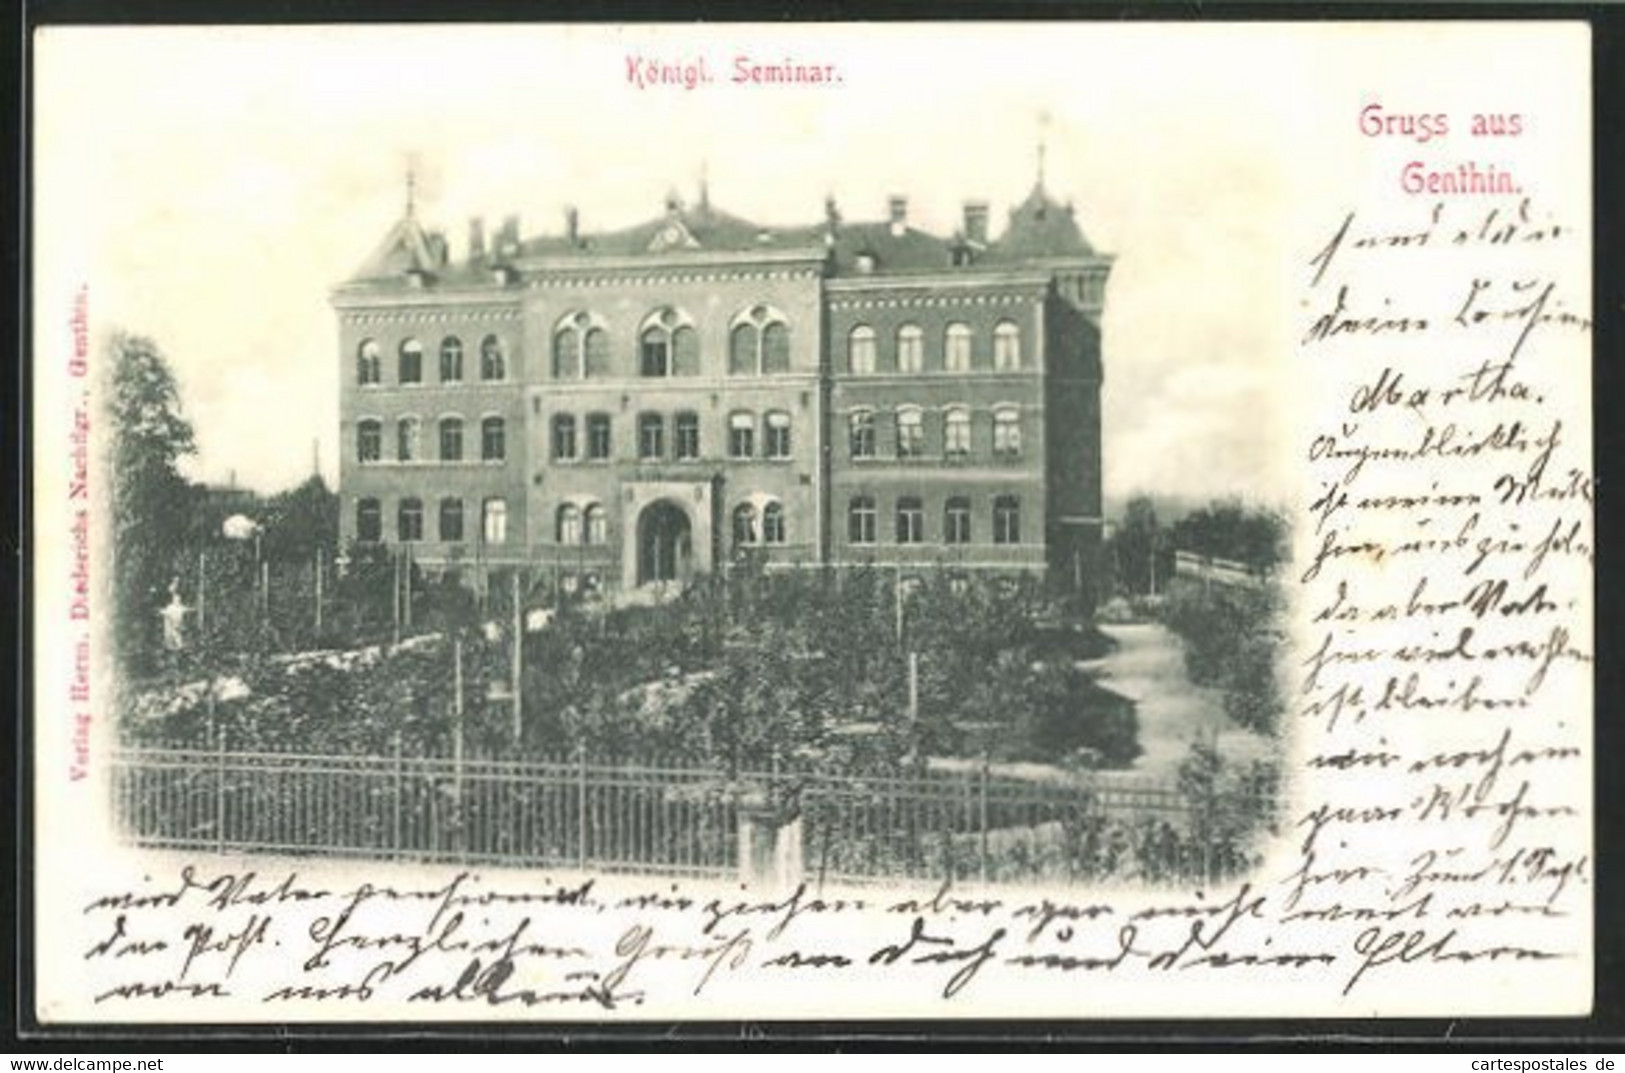 Königl. Seminar.
Gruss aus
Genthin.
sendet Dir
Deine Cousine
Martha.
Augenblicklich
ist meine Mutter
hier, uns zu holen,
da aber Vater
hier viel wohler
ist, bleiben
wir noch ein
paar Wochen
hier. Zum 1. Sept.
wird Vater pensioniert, wir ziehen aber gar nicht weit von
der Post. Herzlichen Gruß an Dich und Deine Eltern
von uns allen.
Verlag Herm. Diederichs Nachflgr., Genthin.
cartespostales de